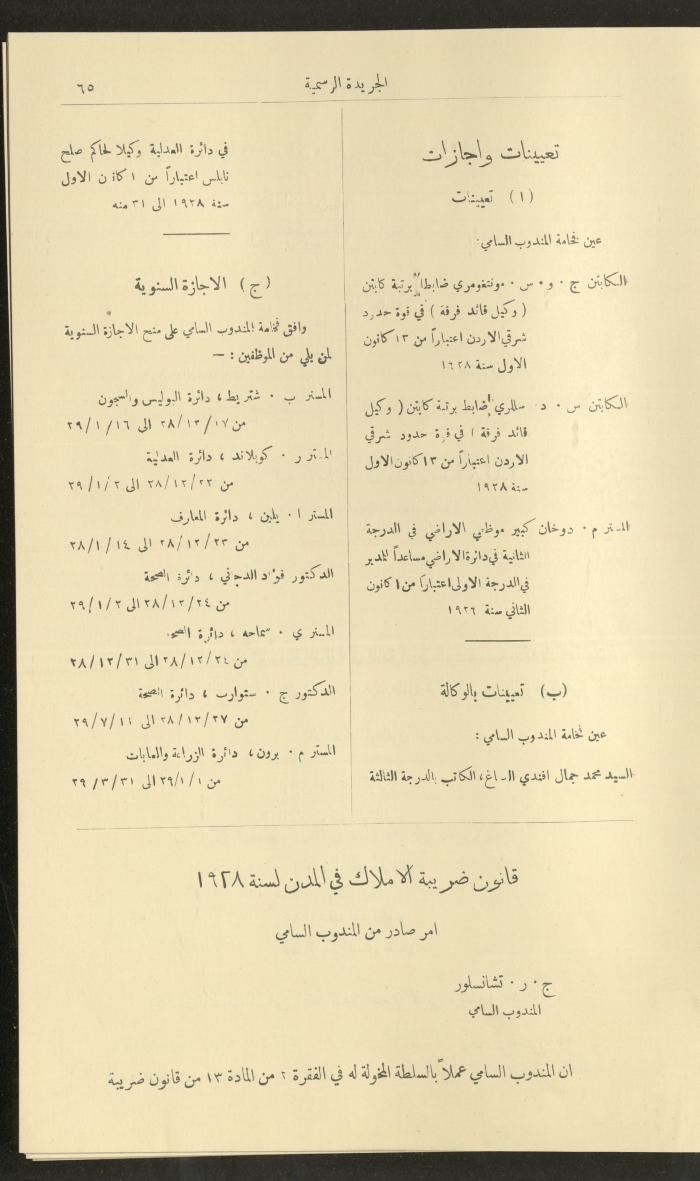 الجريدة الرسمية
٦٥
تعيينات واجازات
(١) تعيينات
عين فخامة المندوب السامي:
الكابتن ج . و . س . مونتغومري ضابطاً برتبة كابتن
( وكيل قائد فرقة ) في قوة حدود
شرقي الاردن اعتباراً من ١٣ كانون
الاول سنة ١٩٢٨
الكابتن س . د . سللري ضابط برتبة كابتن ( وكيل
قائد فرقة ) في قوة حدود شرقي
الاردن اعتباراً من ١٣ كانون الاول
سنة ١٩٢٨
المستر م . دوخان كبير موظفي الاراضي في الدرجة
الثانية في دائرة الاراضي مساعداً للمدير
في الدرجة الاولى اعتباراً من ١ كانون
الثاني سنة ١٩٢٦
(ب) تعيينات بالوكالة
عين فخامة المندوب السامي :
السيد محمد جمال افندي ، الكاتب بالدرجة الثالثة
في دائرة العدلية وكيلا لحاكم صلح
نابلس اعتباراً من ١ كانون الاول
سنة ١٩٢٨ الى ٣١ منه
(ج) الاجازة السنوية
وافق فخامة المندوب السامي على منح الاجازة السنوية
لمن يلي من الموظفين : —
المستر ب . شتريط ، دائرة البوليس والسجون
من ٢٨/١٢/١٧ الى ٢٩/١/١٦
المستر ر . كوبلاند ، دائرة العدلية
من ٢٨/١٢/٢٢ الى ٢٩/١/٢
المستر ا . يلين ، دائرة المعارف
من ٢٨/١٢/٢٣ الى ٢٨/١/١٤
الدكتور فؤاد الدجاني ، دائرة الصحة
من ٢٨/١٢/٢٤ الى ٢٩/١/٢
المستر ي . سماحه ، دائرة الصحة
من ٢٨/١٢/٢٤ الى ٢٨/١٢/٣١
الدكتور ج . ستوارب ، دائرة الصحة
من ٢٨/١٢/٢٧ الى ٢٩/٧/١١
المستر م . برون ، دائرة الزراعة والغابات
من ٢٩/١/١ الى ٢٩/٣/٣١
قانون ضريبة الاملاك في المدن لسنة ١٩٢٨
امر صادر من المندوب السامي
ج . ر . تشانسلور
المندوب السامي
ان المندوب السامي عملاً بالسلطة المخولة له في الفقرة ٢ من المادة ١٣ من قانون ضريبة